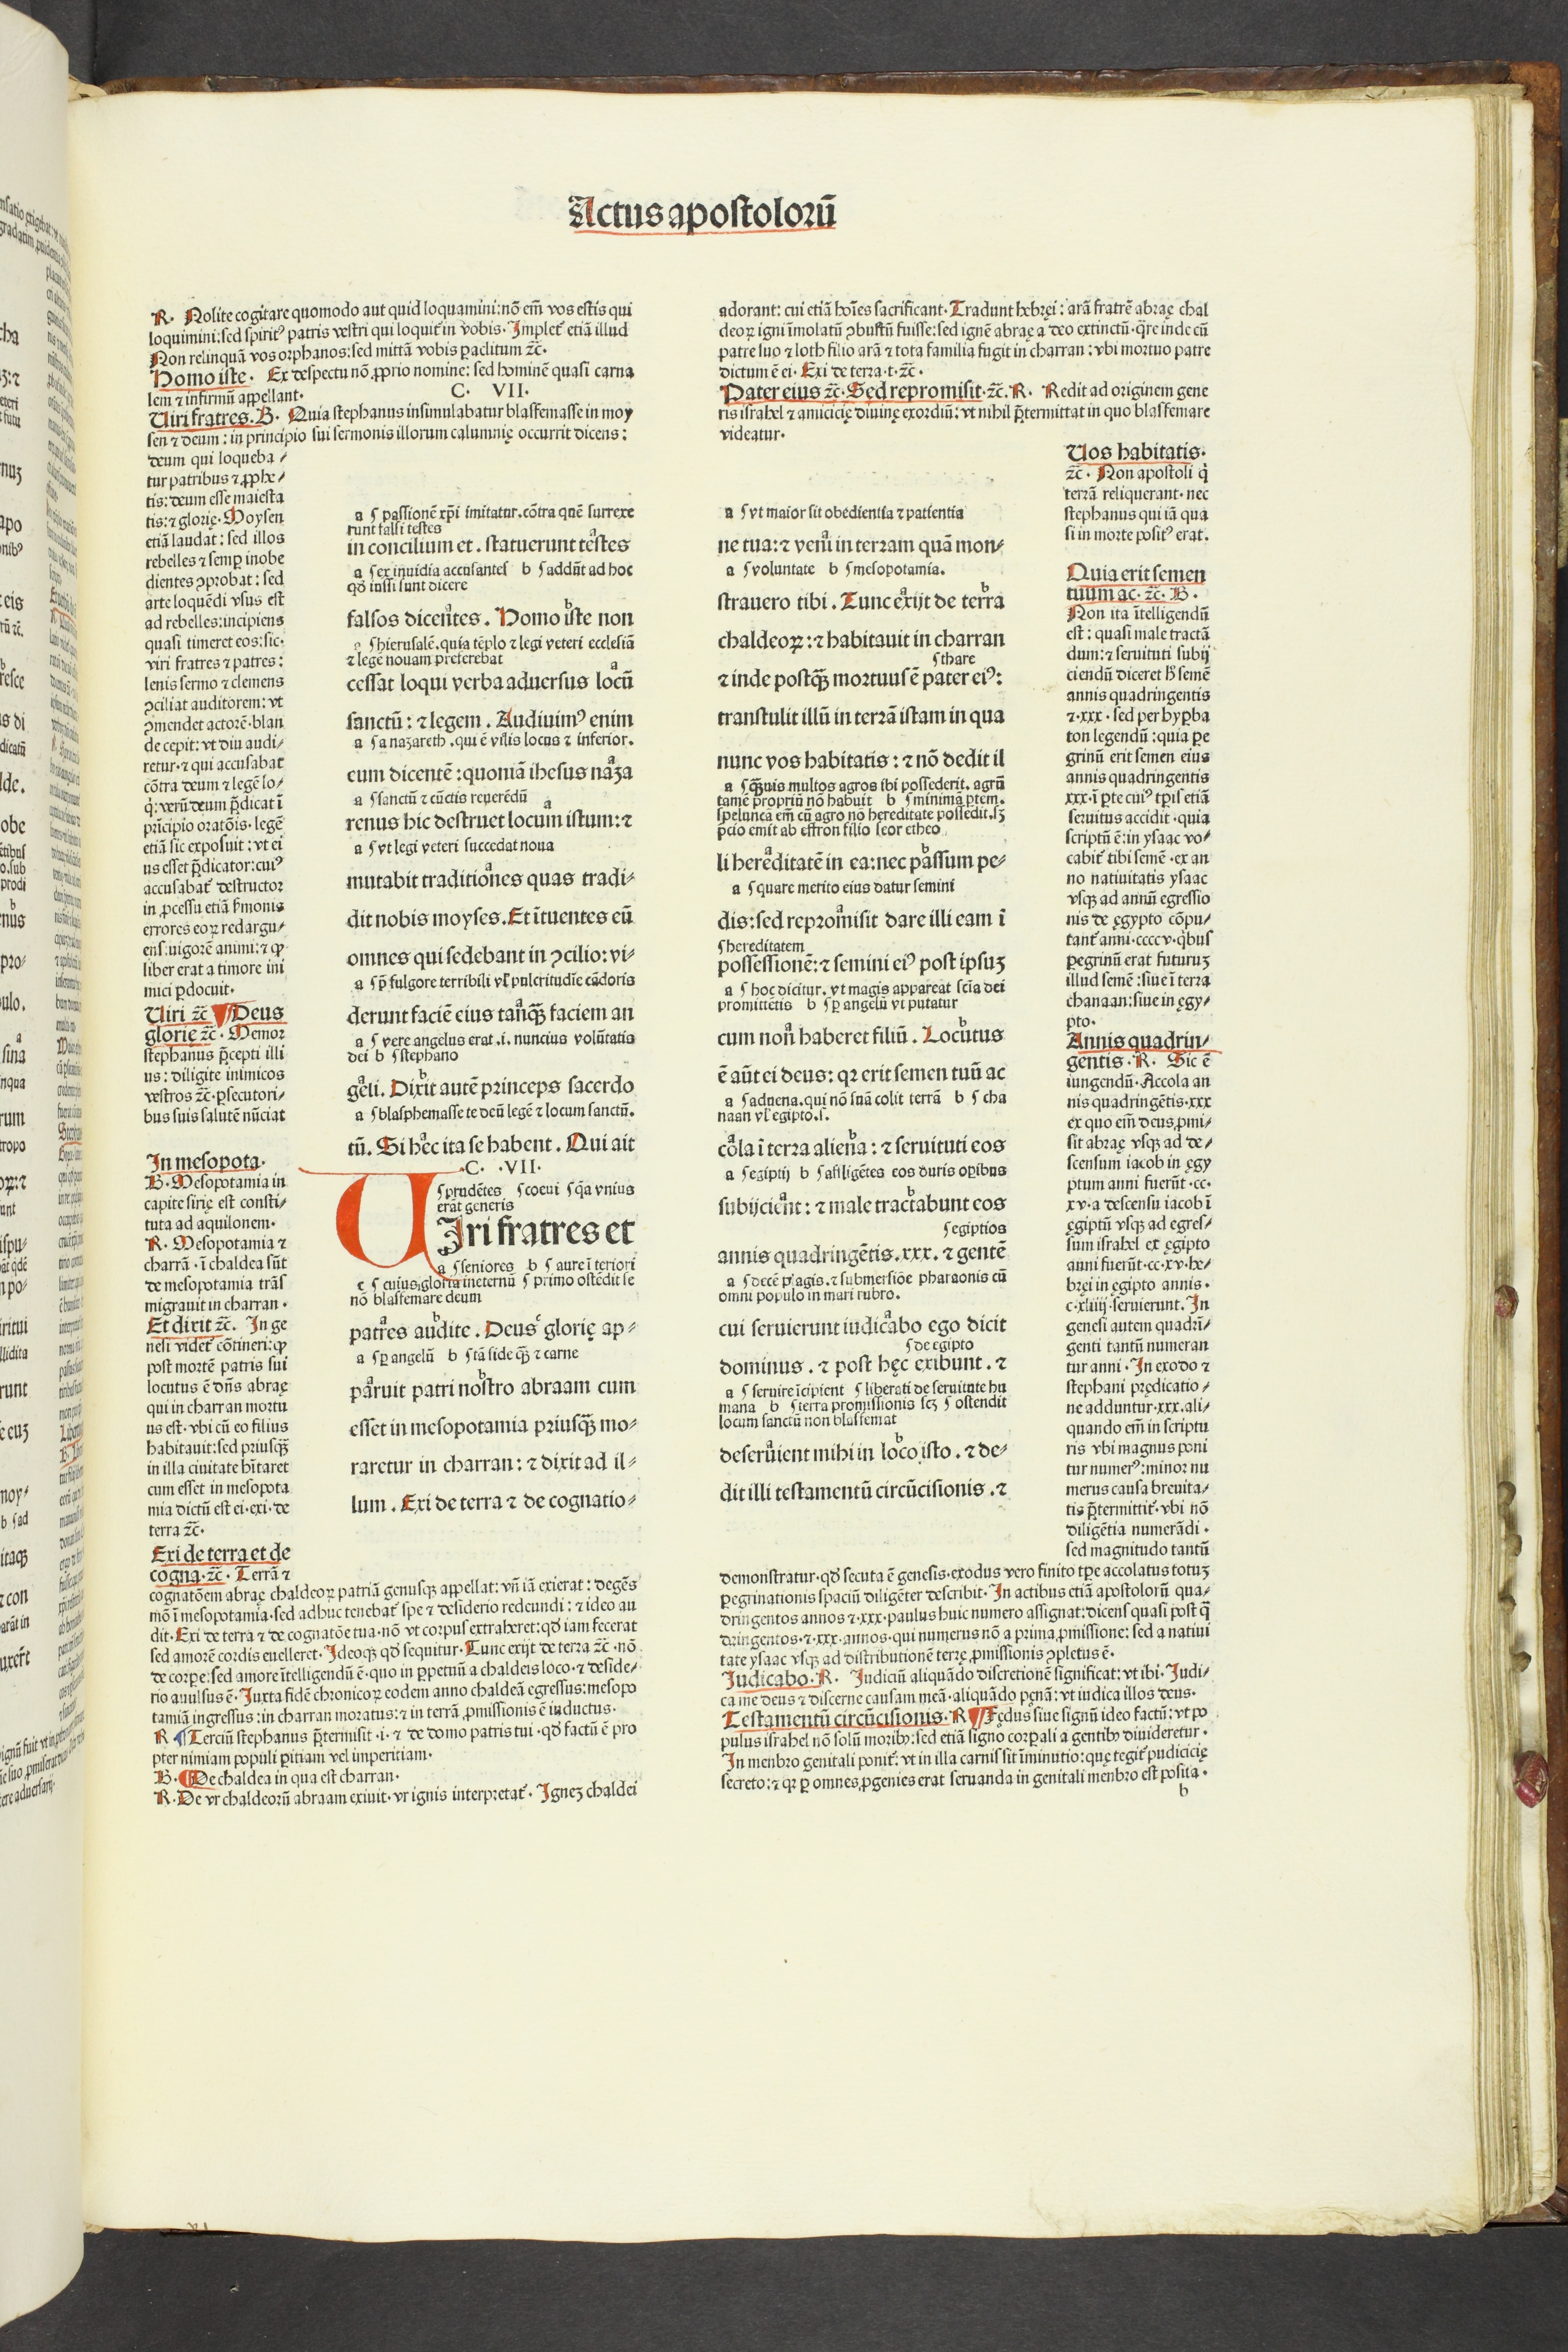 Actus apostolorū
R. Nolite cogitare quomodo aut quid loquamini: nō em̄ vos estis qui
loquimini: sed spiritꝰ patris vestri qui loquit̄ in vobis. Implet̄ etiā illud
Non relinquā vos orphanos: sed mittā vobis paclitum ⁊c̄.
Homo iste. Ex despectu nō ꝓprio nomine: sed hominē quasi carna
lem ⁊ infirmū appellant.
C. VII.
Uiri fratres. B. Quia stephanus insimulabatur blasfemasse in moy
sen ⁊ deum: in principio sui sermonis illorum calumnię occurrit dicens:
deum qui loqueba⸗
tur patribus ⁊ ꝓphe⸗
tis: deum esse maiesta
tis: ⁊ glorię. Moysen
etiā laudat: sed illos
rebelles ⁊ semꝑ inobe
dientes ꝯprobat: sed
arte loquēdi vsus est
ad rebelles: incipiens
quasi timeret eos: sic.
viri fratres ⁊ patres:
lenis sermo ⁊ clemens
ꝯciliat auditorem: vt
ꝯmendet actorē. blan
de cepit: vt diu audi⸗
retur. ⁊ qui accusabat̄
cōtra deum ⁊ legē lo⸗
q̇: verū deum p̄dicat ī
prīcipio oratōis. legē
etiā sic exposuit: vt ei
us esset p̄dicator: cuiꝰ
accusabat̄ destructor
in ꝓcessu etiā ẜmonis
errores eoꝝ redargu⸗
ens: uigorē animi: ⁊ ꝙ
liber erat a timore ini
mici ꝑdocuit.
Uiri ⁊c̄ ¶ Deus
glorię ⁊c̄. Memor
stephanus p̄cepti illi
us: diligite inimicos
vestros ⁊c̄. ꝑsecutori⸗
bus suis salutē nūciat
In mesopota.
B. Mesopotamia in
capite sirię est consti⸗
tuta ad aquilonem.
R. Mesopotamia ⁊
charrā. ī chaldea sūt
de mesopotamia trās
migrauit in charran.
Et dixit ⁊c̄. In ge
nesi videt̄ cōtineri: ꝙ
post mortē patris sui
locutus ē dn̄s abraę
qui in charran mortu
us est. vbi cū eo filius
habitauit: sed priusꝗ̄
in illa ciuitate hītaret
cum esset in mesopota
mia dictū est ei. exi. de
terra ⁊c̄.
Exi de terra et de
cogna. ⁊c̄. Terrā ⁊
cognatōem abraę chaldeoꝝ patriā genusqꝫ appellat: vn̄ iā exierat: degēs
mō ī mesopotamia. sed adhuc tenebat̄ spe ⁊ desiderio redeundi: ⁊ ideo au
dit. Exi de terra ⁊ de cognatōe tua. nō vt corpus extraheret: qđ iam fecerat
sed amorē cordis euelleret. Ideoqꝫ qđ sequitur. Tunc exijt de terra ⁊c̄. nō
de corꝑe. sed amore ītelligendū ē. quo in ꝑpetuū a chaldeis loco. ⁊ deside⸗
rio auulsus ē. Juxta fidē chronicoꝝ eodem anno chaldeā egressus: mesopo
tamiā ingressus: in charran moratus: ⁊ in terrā ꝓmissionis ē inductus.
R ¶ Terciū stephanus p̄termisit. i. ⁊ de domo patris tui. qđ factū ē pro
pter nimiam populi ꝑitiam vel imperitiam.
B. ¶ De chaldea in qua est charran.
R. De vr chaldeorū abraam exiuit. vr ignis interpretat̄. Ignez chaldei
a ſ passionē xp̄i imitatur. cōtra quē surrexe
runt falsi testes
in concilium et. statuerunt testes
a ſ ex inuidia accusantes b ſ addūt ad hoc
qđ iussi sunt dicere
falsos dicentes. Homo iste non
a ſ hierusalē. quia tēplo ⁊ legi veteri ecclesiā
⁊ legē nouam preferebat
cessat loqui verba aduersus locū
sanctū: ⁊ legem. Audiuimꝰ enim
a ſ a nazareth. qui ē vilis locus ⁊ inferior.
eum dicentē: quoniā ihesus naza
a ſ sanctū ⁊ cūctis reuerēdū
renus hic destruet locum istum: ⁊
a ſ vt legi veteri succedat noua
mutabit traditiones quas tradi⸗
dit nobis moyses. Et ītuentes eū
omnes qui sedebant in ꝯcilio: vi⸗
a ſ p̄ fulgore terribili vl̄ pulcritudīe cādoris
derunt faciē eius tanꝗ̄ faciem an
a ſ vere angelus erat .i. nuncius volūtatis
dei b ſ stephano
geli. Dixit autē princeps sacerdo
a ſ blasphemasse te deū legē ⁊ locum sanctū.
tū. Si hęc ita se habent. Qui ait
.C. .VII.
ſ prudētes ſ coeui ſ q̄a vnius
erāt generis
UIri fratres et
a ſ seniores b ſ aure īteriori
c ſ cuius gloria in eternū ſ primo ostēdit se
nō blasfemare deum
patres audite. Deus glorię ap⸗
a ſ ꝑ angelū b ſ tā fide ꝗ̄ ⁊ carne
paruit patri nostro abraam cum
esset in mesopotamia priusꝗ̄ mo⸗
raretur in charran: ⁊ dixit ad il⸗
lum. Exi de terra ⁊ de cognatio⸗
adorant: cui etiā hoīes sacrificant. Tradunt hebręi: arā fratrē abraę chal
deoꝝ igni īmolatū ꝯbustū fuisse: sed ignē abraę a deo extinctū. q̄re inde cū
patre suo ⁊ loth filio arā ⁊ tota familia fugit in charran: vbi mortuo patre
dictum ē ei. Exi de terra. t. ⁊c̄.
Pater eius ⁊c̄. Sed repromisit. ⁊c̄. R. Redit ad originem gene
ris israhel ⁊ amicicię diuinę exordiū: vt nihil p̄termittat in quo blasfemare
videatur.
a ſ vt maior sit obedientia ⁊ patientia
ne tua: ⁊ veni in terram quā mon⸗
a ſ voluntate b ſ mesopotamia.
strauero tibi. Tunc exijt de terra
chaldeoꝝ: ⁊ habitauit in charran
ſ thare
⁊ inde postꝗ̄ mortuus ē pater eiꝰ:
transtulit illū in terrā istam in qua
nunc vos habitatis: ⁊ nō dedit il
a ſ ꝗ̄uis multos agros ibi possederit. agrū
tamē propriū nō habuit b ſ minimā ꝑtem.
spelunca em̄ cū agro nō hereditate possedit. sꝫ
p̄cio emit ab effron filio seor etheo
li hereditatē in ea: nec passum pe⸗
a ſ quare merito eius datur semini
dis: sed repromisit dare illi eam ī
ſ hereditatem
possessionē: ⁊ semini eiꝰ post ipsuꝫ
a ſ hoc dicitur. vt magis appareat scīa dei
promittētis b ſ ꝑ angelū vt putatur
cum non haberet filiū. Locutus
ē aūt ei deus: qꝛ erit semen tuū ac
a ſ aduena. qui nō suā colit terrā b ſ cha
naan vl̄ egipto. s.
cola ī terra aliena: ⁊ seruituti eos
a ſ egiptij b ſ affligētes eos duris oꝑibus
subijcient: ⁊ male tractabunt eos
ſ egiptios
annis quadringētis. xxx. ⁊ gentē
a ſ decē plagis. ⁊ submersiōe pharaonis cū
omni populo in mari rubro.
cui seruierunt iudicabo ego dicit
ſ de egipto
dominus. ⁊ post hęc exibunt. ⁊
a ſ seruire īcipient ſ liberati de seruitute hu
mana b ſ terra promissionis scꝫ ſ ostendit
locum sanctū non blasfemat
deseruient mihi in loco isto. ⁊ de⸗
dit illi testamentū circūcisionis. ⁊
Uos habitatis.
⁊c̄. Non apostoli q̇
terrā reliquerant. nec
stephanus qui iā qua
si in morte positꝰ erat.
Quia erit semen
tuum ac. ⁊c̄. B.
Non ita ītelligendū
est: quasi male tractā
dum: ⁊ seruituti subij
ciendū diceret hͦ semē
annis quadringentis
⁊. xxx. sed per hyꝑba
ton legendū: quia ꝑe
grinū erit semen eius
annis quadringentis
xxx. ī ꝑte cuiꝰ tꝑis etiā
seruitus accidit. quia
scriptū ē: in ysaac vo⸗
cabit̄ tibi semē. ex an
no natiuitatis ysaac
vsqꝫ ad annū egressio
nis de ęgypto cōpu⸗
tant̄ anni. cccc v. q̇bus
ꝑegrinū erat futuruꝫ
illud semē: siue ī terra
chanaan: siue in ęgy⸗
pto.
Annis quadrin⸗
gentis. R. Sic ē
iungendū. Accola an
nis quadringētis. xxx
ex quo em̄ deus ꝓmi⸗
sit abraę vsqꝫ ad de⸗
scensum iacob in ęgy
ptum anni fuerūt. cc.
xv. a descensu iacob ī
ęgiptū vsqꝫ ad egres⸗
sum israhel ex ęgipto
anni fuerūt. cc. xv. he⸗
bręi in ęgipto annis.
c. xliiij. seruierunt. In
genesi autem quadrī⸗
genti tantū numeran
tur anni. In exodo ⁊
stephani prędicatio⸗
ne adduntur. xxx. ali⸗
quando em̄ in scriptu
ris vbi magnus poni
tur numerꝰ: minor nu
merus causa breuita⸗
tis p̄termittit̄. vbi nō
diligētia numerādi.
sed magnitudo tantū
demonstratur. qđ secuta ē genesis. exodus vero finito tꝑe accolatus totuꝫ
ꝑegrinationis spaciū diligēter describit. In actibus etiā apostolorū qua⸗
dringentos annos ⁊. xxx. paulus huic numero assignat: dicens quasi post q̄
dringentos. ⁊. xxx. annos. qui numerus nō a prima ꝓmissione: sed a natiui
tate ysaac vsqꝫ ad distributionē terrę ꝓmissionis ꝯpletus ē.
Judicabo. R. Judiciū aliquādo discretionē significat: vt ibi. Judi⸗
ca me deus ⁊ discerne causam meā. aliquādo pęnā: vt iudica illos deus.
Testamentū circūcisionis. R ¶ Fędus siue signū ideo factū: vt po
pulus israhel nō solū moribꝫ: sed etiā signo corꝑali a gentibꝫ diuideretur.
In menbro genitali ponit̄: vt in illa carnis sit īminutio: quę tegit̄ pudicicię
secreto: ⁊ qꝛ ꝑ omnes ꝓgenies erat seruanda in genitali menbro est posita.
b